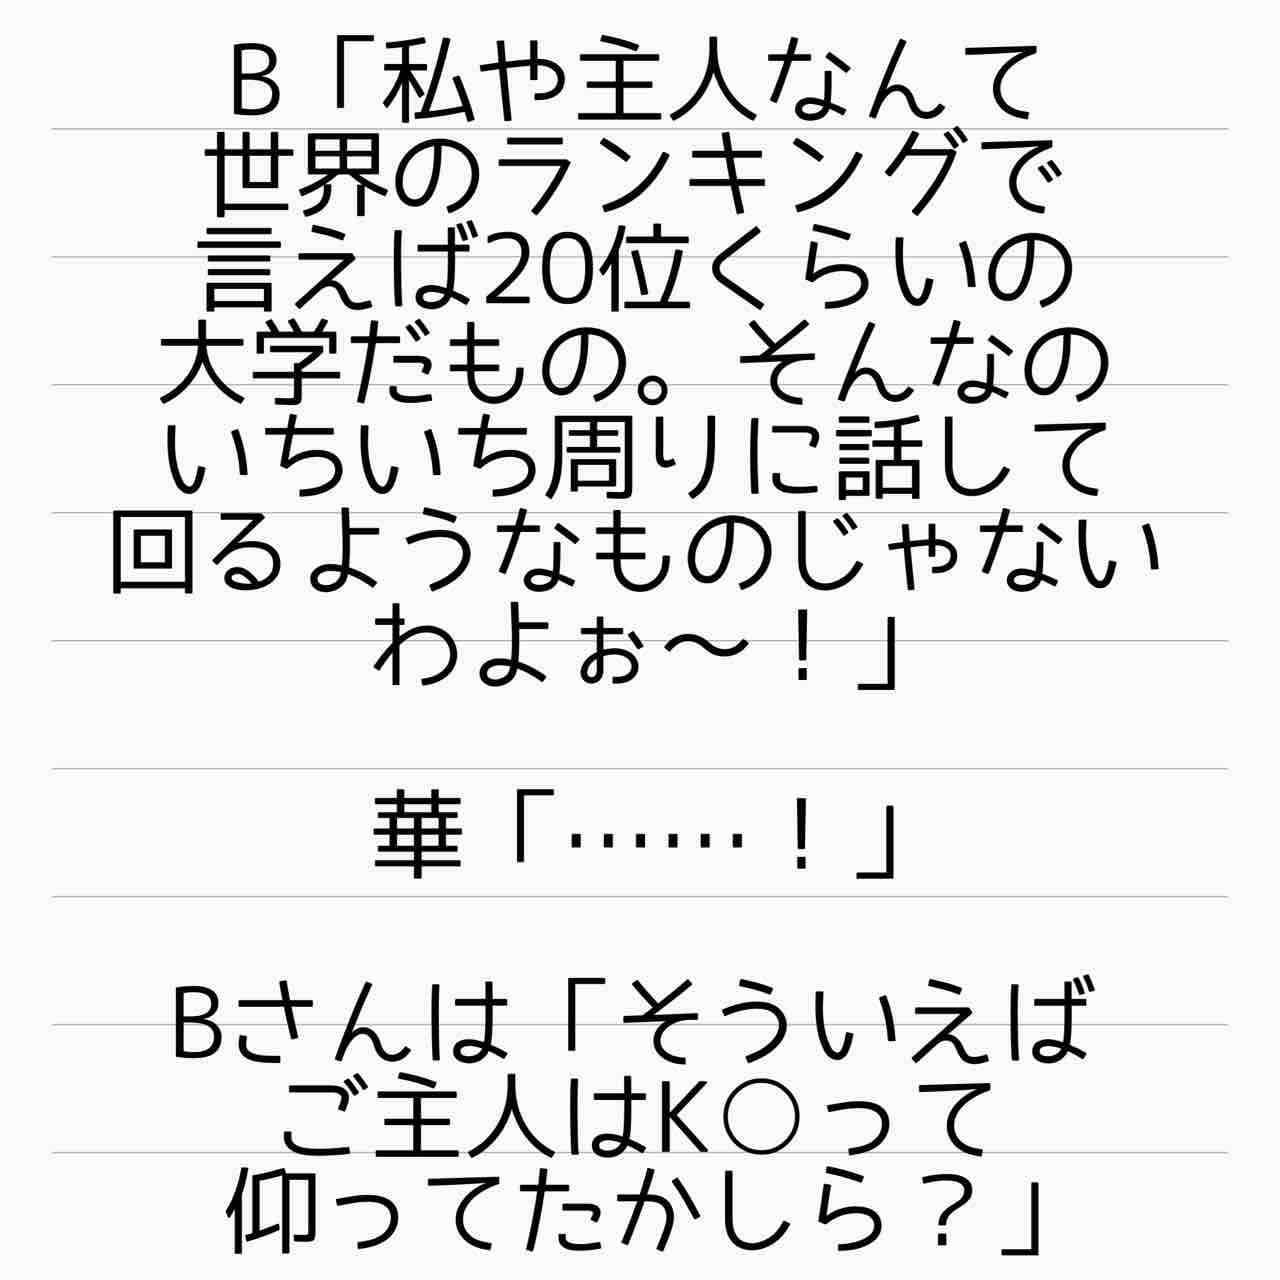 B「私や主人なんて
世界のランキングで
言えば20位くらいの
大学だもの。そんなの
いちいち周りに話して
回るようなものじゃない
わよぉ〜！」
華「……！」
Bさんは「そういえば
ご主人はK○って
仰ってたかしら？」